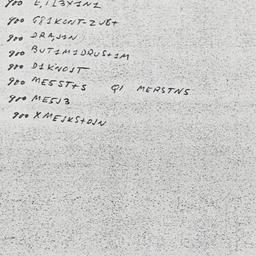 900 E,1L3X1N1
900 G81KONT-2UE+
900 DRA,J1N
900 BUT1M1DRUS+1M
900 D1KNOJT
900 MEEST+S QI MERSTNS
900 MEEJ3
900 XMEJKS+OJN